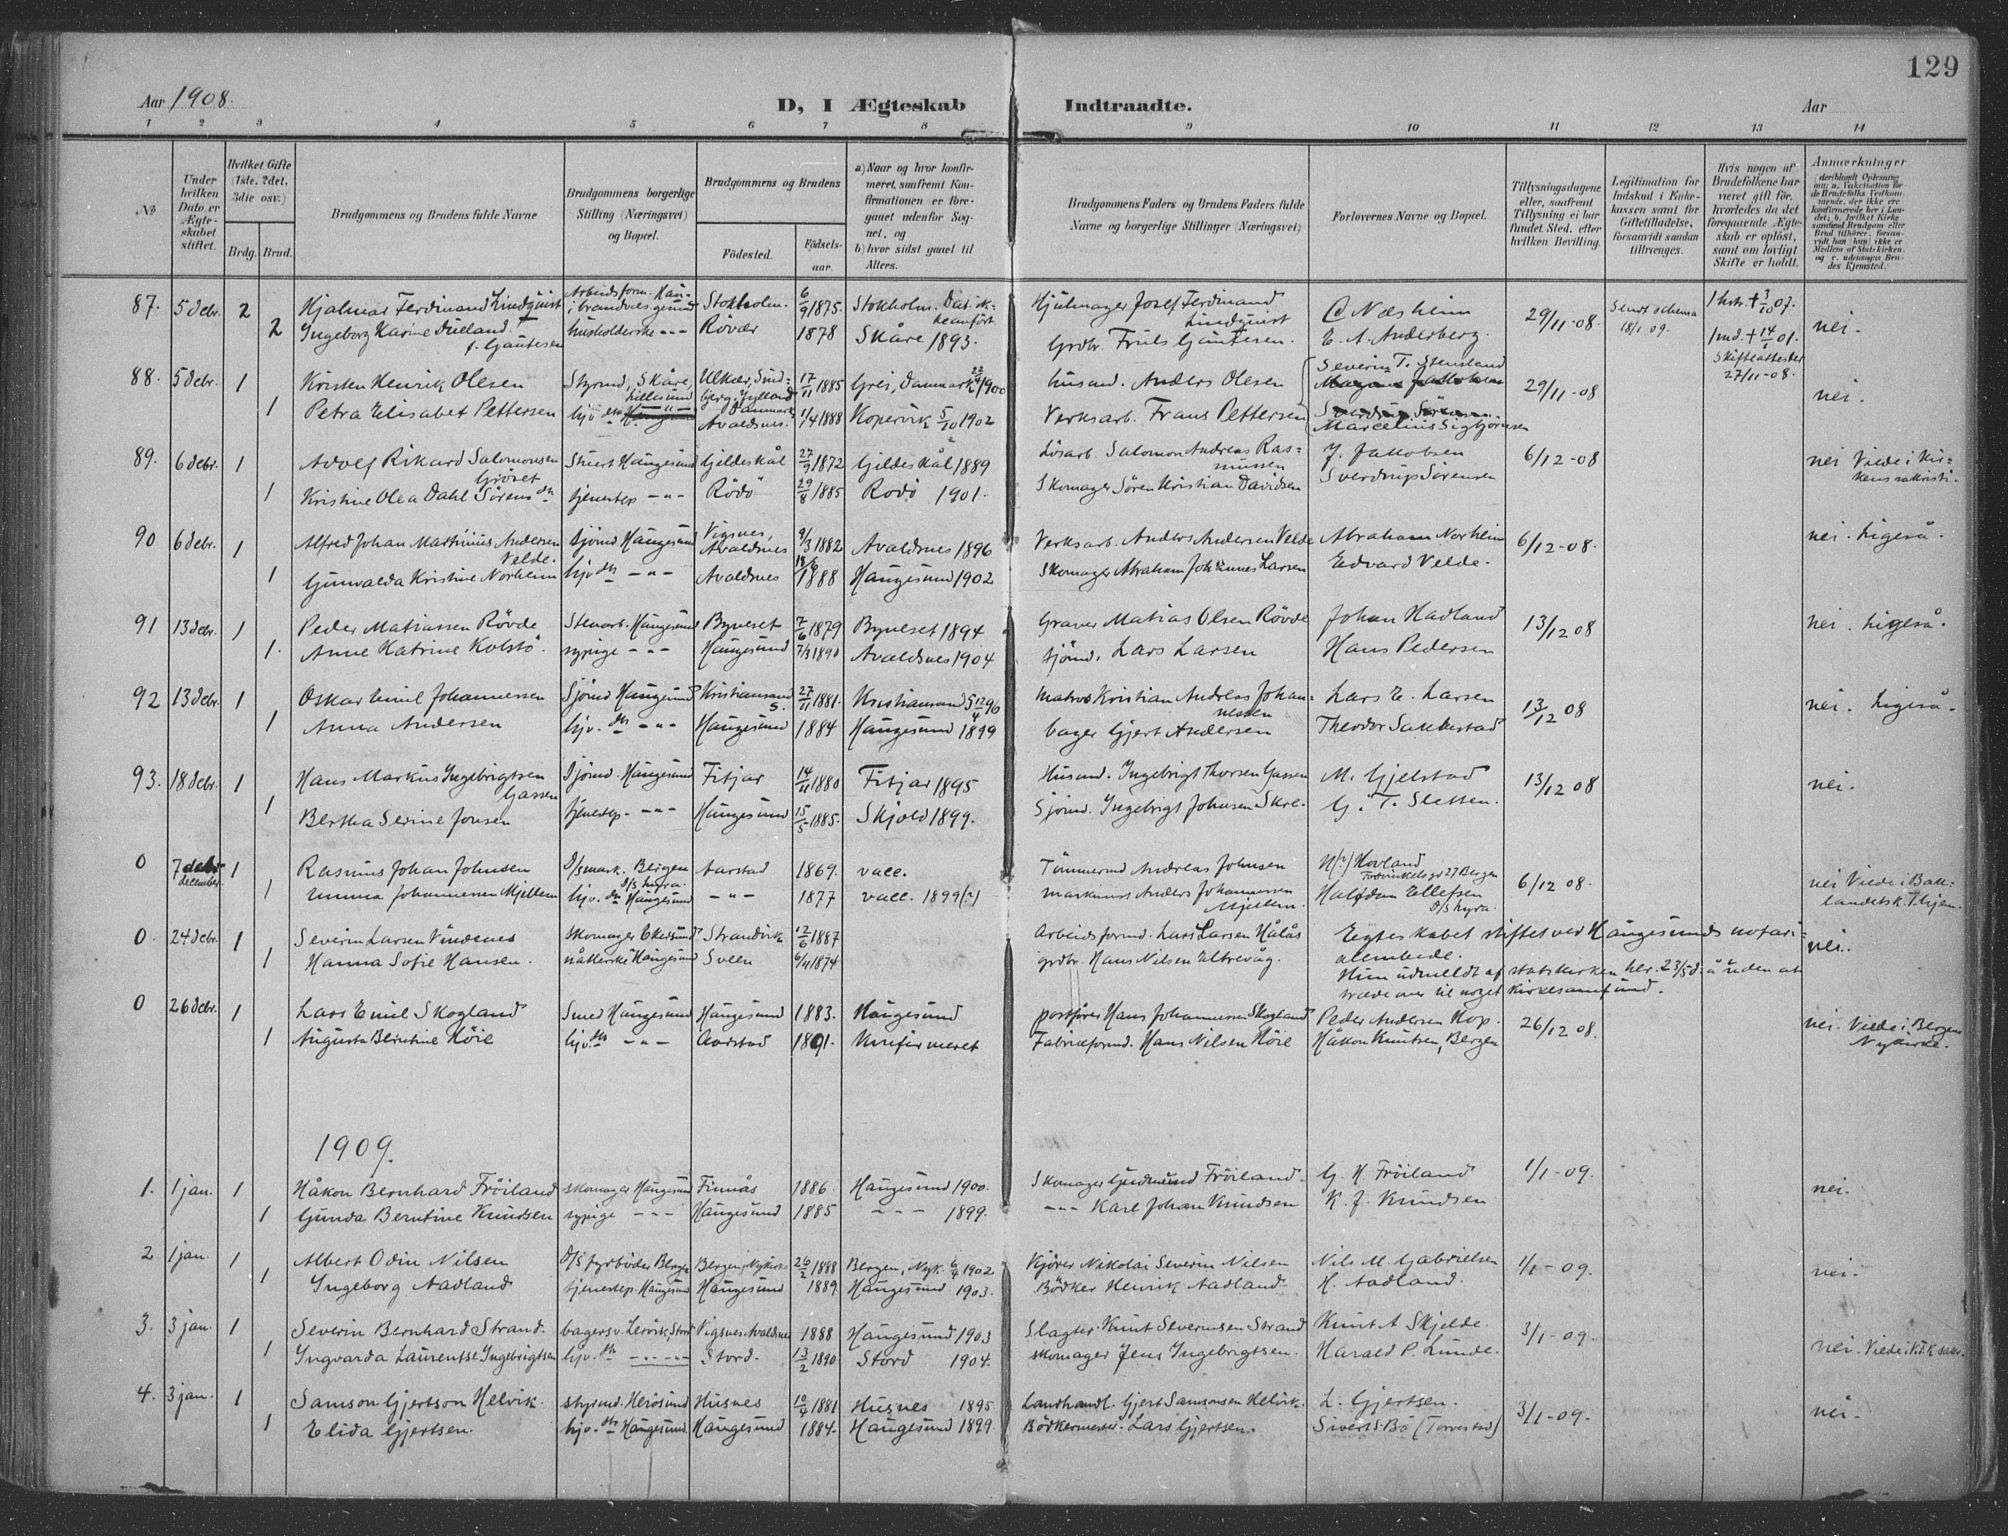 129
Aar 1908.
D, I Ægteskab Indtraadte.
Aar
1 2 3 4 5 6 7 8 9 10 11 12 13 14
No
Under hvilken Dato er Ægteskabet stiftet.
Hvilket Gifte (1ste, 2det, 3die osv.)
Brdg. Brud.
Brudgommens og Brudens fulde Navne
Brudgommens borgerlige Stilling (Næringsvei) og Bopæl.
Brudgommens og Brudens
Fødested. Fødselsaar.
a) Naar og hvor konfirmeret, saafremt Konfirmationen er foregaaet udenfor Sognet, og
b) hvor sidst gaaet til Alters.
Brudgommens Faders og Brudens Faders fulde Navne og borgerlige Stillinger (Næringsvei)
Forlovernes Navne og Bopæl.
Tillysningsdagene eller, saafremt Tillysning ei har fundet Sted, efter hvilken Bevilling.
Legitimation for Indskud i Enkekassen samt for Giftetilladelse, forsaavidt saadan tiltrænges.
Hvis nogen af Brudefolkene har været gift før, hvorledes da det foregaaende Ægteskab er opløst, samt om lovligt Skifte er holdt.
Anmærkninger
87. 5 debr. 2 Hjalmar Ferdinand Lindquist Arbeidsform. Hau- Stokholm. 6/9 1875. Stokholm. Hjulmager Josef Ferdinand Lindquist C Næsheim 29/11-08. Sendt schema 18/1 09. 1 hstr. + 3/10 07. nei.
2 Ingeborg Karine Dueland f. Gautesen husholderske -"- Røvær 1878 Skåre 1893. Grdbr. Gautesen. E. A. Anderberg. 1 md. + 14/1 01. Skifteattester 27/11-08.
88. 5 debr. 1 Kristen Henrik Olesen Styrmd, Skåre, Lillesund Ulkær, Sindbjerg, Jylland Danmark 17/11 1885 Greis, Danmark 1900 husmd. Anders Olesen Severin T. Stensland 29/11-08 nei.
1 Petra Elisabet Pettersen hjv. dtr Avaldsnes. 1/4 1888 Kopervik 5/10 1902 Verksarb. Frans Pettersen Marcelius Sigbjørnsen
89. 6 debr. 1 Adolf Rikard Salomonsen Grøset Stuert Haugesund Gildeskål 27/9 1872 Gildeskål 1889 Løsarb. Salomon Andreas Rasmussen J. Jakobsen 6/12-08 nei Viede i Kirkens sakristi.
1 Kristine Olea Dahl Sørensdtr. tjenestep -"- Rödö 29/8 1885 Rödö 1901. Skomager Sören Kristian Davidsen Sverdrup Sörensen
90 6 debr. 1 Alfred Johan Martinius Andersen Velde. Sjømd Haugesund Vigsnes, Avaldsnes 9/3 1882 Avaldsnes 1896 Verksarb. Anders Andersen Velde Abraham Norheim 6/12-08. nei. Ligeså.
1 Gunvalda Kristine Norheim hjv dtr -"- Avaldsnes 1888 Haugesund 1902 Skomager Abraham Johannes Larsen Edvard Velde.
91 13 debr. 1 Peder Matiassen Rövde Stenarb. Haugesund Byneset 7/6 1879 Byneset 1894 Graver Matias Olsen Rövde Johan Hadland 13/12 08 nei. Ligeså.
1. Anne Katrine Kolstö sypige -"- Haugesund 7/3 1890 Avaldsnes 1904 sjömd. Lars Larsen Hans Pedersen
92 13 debr. 1 Oskar Emil Johannessen Sjömd Haugesund Kristiansand S. 27/11 1881. Kristiansand S 12/4 96 Matros Kristian Andreas Johannessen Lars E. Larsen 13/12 08 nei. Ligeså.
1 Anna Andersen hjv. dtr -"- Haugesund 1884 Haugesund 1899 bager Gjert Andersen Theodor Sakkestad
93. 18 debr. 1 Hans Markus Ingebrigtsen Gassen Sjömd. Haugesund Fitjar 14/11 1880 Fitjar 1895 Husmd. Ingebrigt Thorsen Gassen M. Gjelstad 13/12 08 nei.
1 Bertha Serine Jonsen tjenestep. -"- Haugesund 15/5 1885. Skjold 1899. Sjömd. Ingebrigt Johnsen Skre. G. T. Sletten.
0 7 december 1 Rasmus Johan Johnsen D/smask. Bergen Aarstad 1869. vacc. Tömmermd Andreas Johnsen N(?) Hovland Bergen 6/12 08. nei Viede i Baklandets k. Thjem.
1 Emma Johannesen Mjellem hjv. dtr Haugesund -"- 1877 vacc. 1899(?) maskinist Anders Johannessen Mjellem. Halfdan Ellefsen D/S Lyra.
0. 24 debr. 1 Severin Larsen Vindenes skomager Ekesund Strandvik 12/6 1887 Arbeidsformd. Lars Larsen Hålås Egteskabet stiftet ved Haugesunds notarialembede. nei.
1 Hanna Sofie Hansen. Haugesund Sveen 6/11 1874 grdbr. Hans Nilsen Eltrevåg. Hun udmeldt af statskirken her. 23/5 d. å uden at træde over til noget kirkesamfund.
0 26 debr. 1 Lars Emil Skogland Smed Haugesund Haugesund 1883. Haugesund postfører Hans Johannessen Skogland Peder Andersen Kop. 26/12 08. nei. Viede i Bergens Nykirke.
1 Augusta Berntine Höie hjv. dtr -"- Aarstad 1891. Konfirmeret Fabrikformd. Hans Nilsen Höie Håkon Knutsen, Bergen
1909.
1. 1 jan. 1 Håkon Bernhard Fröiland skomager Haugesund Finnås 1886. Haugesund 1900. Skomager Gudmund Fröiland. G. H Fröiland 1/1-09. nei.
1 Gunda Berntine Knudsen sypige -"- Haugesund 1885 -"- 1899. -"- Karl Johan Knudsen K. J. Knudsen
2 1 jan. 1 Albert Odin Nilsen D/S fyrböder Bergen Bergen, Nykirke 26/2 1888 Bergen, Nyk. 6/4 1902 Kjörer Nikolai Severin Nilsen Nils M. Gabrielsen 1/1-09. nei.
1 Ingeborg Aadland tjenestep. Haugesund Haugesund 1889. Haugesund 1903. Bödker Henrik Aadland. H. Aadland.
3. 3 jan. 1 Severin Bernhard Strand. bagersv. Lervik, Stord Vigsnes. Avaldsnes 1888 Haugesund 1903 Slagter Knut Severinsen Strand Knut A Skjelde. 3/1-09. nei. Viede i K.d.K. sakr.
1 Ingvarda Laurentse Ingebrigtsen hjv. dtr Stord. 13/2 1890 Stord 1904. skomager Jens Ingebrigtsen. Harald P. Lunde.
4. 3 jan. 1 Samson Gjertson Helvik. styrmd. Herösund Husnes 10/4 1881 Husnes 1895 Landhandl. Gjert Samsonsen Helvik. L. Gjertsen. 3/1-09. nei.
1 Elida Gjertsen. hjv. dtr Haugesund Haugesund 1884. Haugesund 1899. Bödkermester Lars Gjertsen. Sivert S. Bö (Torvestad)